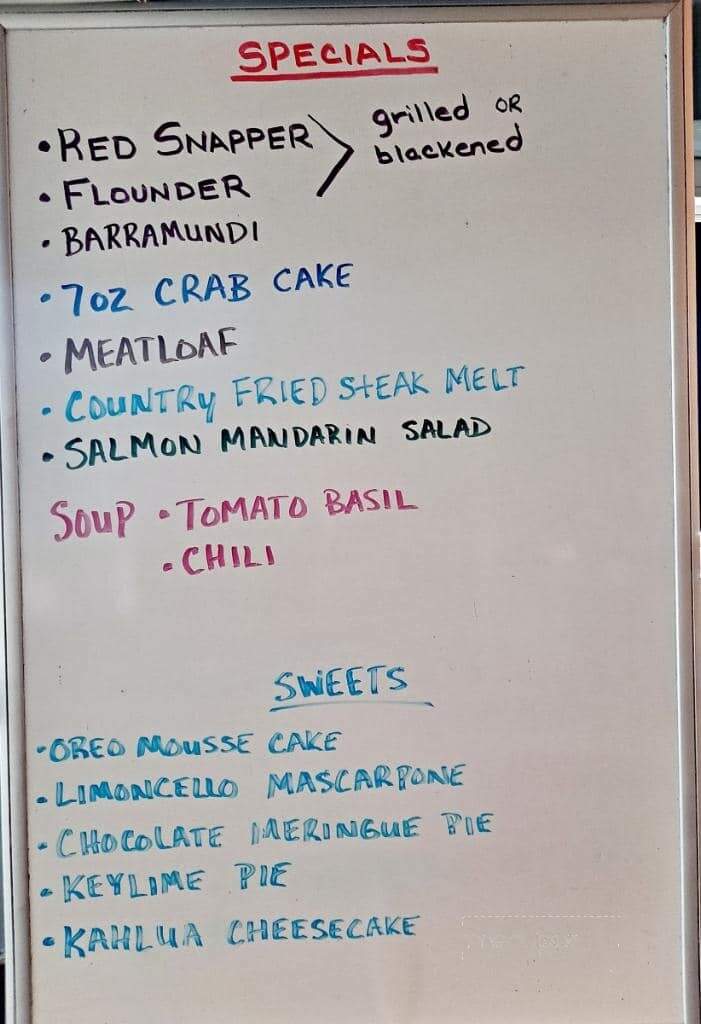 SPECIALS
• RED SNAPPER
grilled OR
blackened
• FLOUNDER
• BARRAMUNDI
• 7oz CRAB CAKE
• MEATLOAF
• COUNTRY FRIED STEAK MELT
• SALMON MANDARIN SALAD
SOUP • TOMATO BASIL
• CHILI
SWEETS
• OREO MOUSSE CAKE
• LIMONCELLO MASCARPONE
• CHOCOLATE MERINGUE PIE
• KEYLIME PIE
• KAHLUA CHEESECAKE